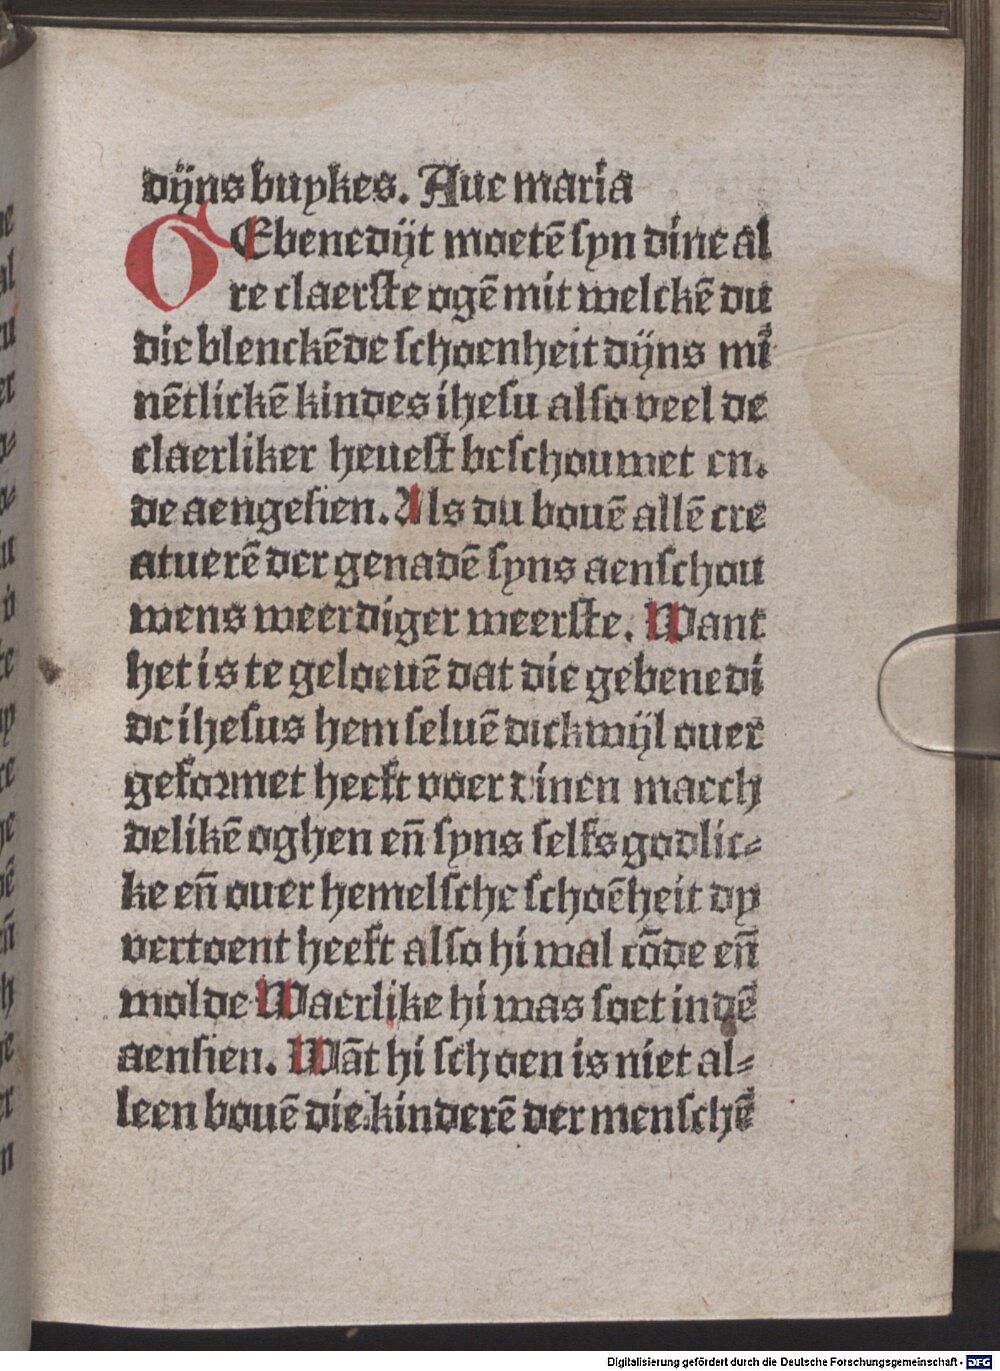 dijns buykes. Aue maria
GEbenedijt moetē syn dine al
re claerste ogē mit welckē du
die blenckēde schoenheit dijns mī
nētlickē kindes ihesu also veel de
claerliker heuest beschouwet en.
de aengesien. Als du bouē allē cre
atuerē der genadē syns aenschou
wens weerdiger weerste. Want
het is te geloeuē dat die gebenedi
de ihesus hem seluē dickwijl ouer
geformet heeft voer dinen maech
delikē oghen en̄ syns selfs godlic⸗
ke en̄ ouer hemelsche schoēheit dy
vertoent heeft also hi wal cōde en̄
wolde Waerlike hi was soet in dē
aensien. Wāt hi schoen is niet al⸗
leen bouē die kinderē der menschē
Digitalisierung gefördert durch die Deutsche Forschungsgemeinschaft - DFG